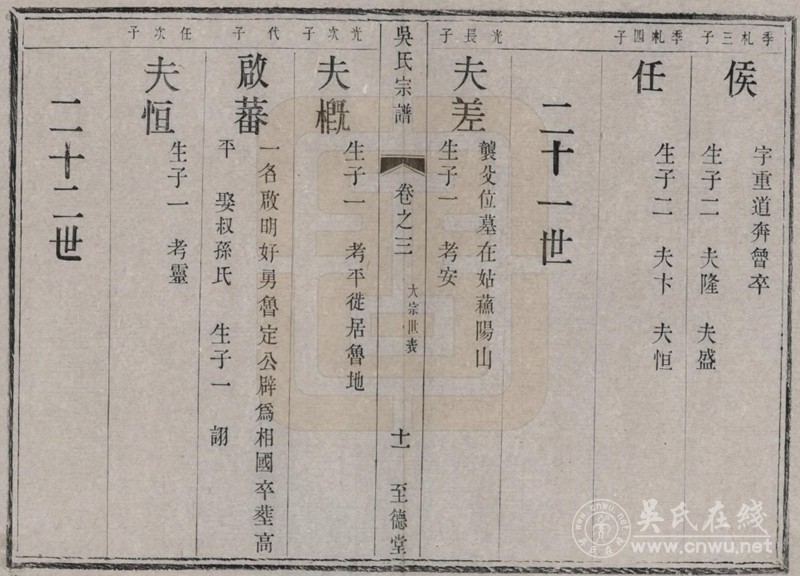 季札三子
侯
字重道奔曾卒
生子二　夫隆　夫盛
季札四子
任
生子二　夫卞　夫恒
二十一世
光長子
夫差
襲父位墓在姑蘇陽山
生子一　考安
吳氏宗譜
卷之三
大宗世表
十一
至德堂
光次子
夫概
生子一　考平徙居魯地
代子
啟蕃
一名啟明好勇魯定公辟爲相國卒塟高
平　娶叔孫氏　生子一　詡
任次子
夫恒
生子一　考靈
二十二世
吴氏在线
www.cnwu.net